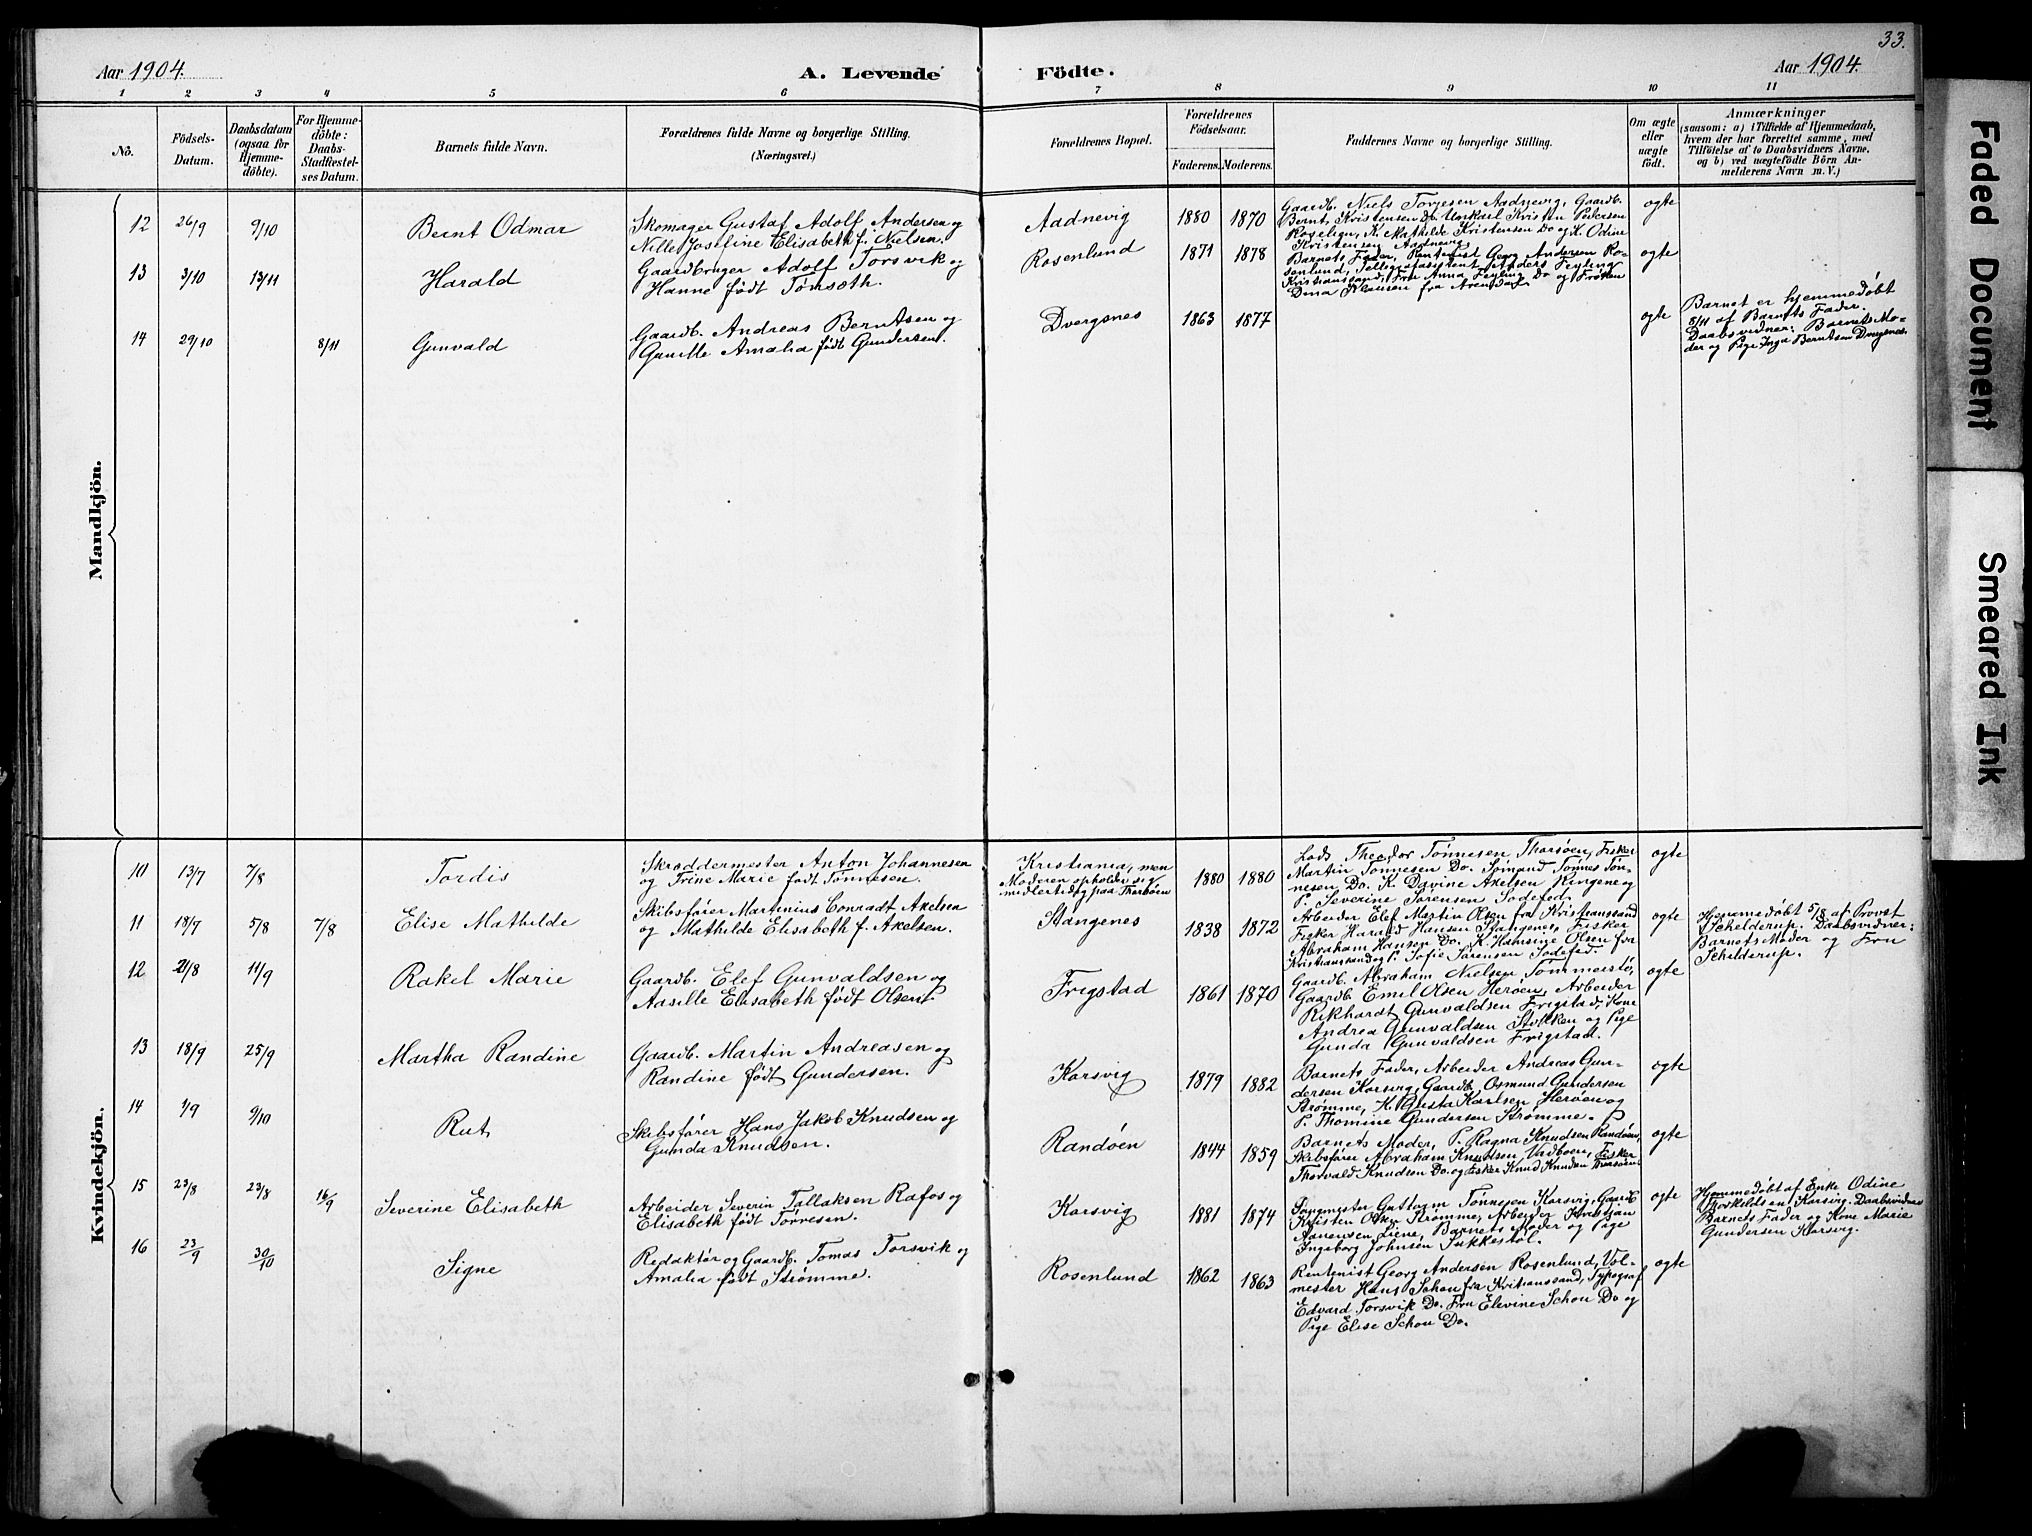 33.
Aar 1904.
A. Levende Födte.
Aar 1904.
1 2 3 4 5 6 7 8 9 10 11
No.
Födsels-
Datum.
Daabsdatum
(ogsaa for
Hjemme-
döbte).
For Hjemme-
döbte:
Daabs-
Stadfæstel-
ses Datum.
Barnets fulde Navn.
Forældrenes fulde Navne og borgerlige Stilling.
(Næringsvei.)
Forældrenes Bopæl.
Forældrenes
Födselsaar.
Faderens. Moderens.
Faddernes Navne og borgerlige Stilling.
Om ægte
eller
uægte
födt.
Anmærkninger
(saasom: a) i Tilfælde af Hjemmedaab,
hvem der har forrettet samme, med
Tilföielse af to Daabsvidners Navne.
og b) ved uægtefödte Börn An-
melderens Navn m. V.)
Mandkjön.
12 26/9 9/10 Bernt Odmar
Skomager Gustaf Adolf Andersen og
Nille Josefine Elisabeth f. Nielsen.
Aadnevig 1880 1870
Gaardb. Niels Torgesen Aadnevig, Gaardb.
Bernt Kristensen Do Unkarl Kristen Pedersen
Roselien, K. Mathilde Kristensen Do og K. Odine
Kristensen Aadnevig
ægte
13 3/10 13/11 Harald
Gaardbruger Adolf Torsvik og
Hanne født Tømsæth.
Rosenlund 1871 1878
Barnets Fader, Rentenist Georg Andersen Ro-
senlund, Anders Feyling
Kristianssand, Fru Anna Feyling Do og Frøken
Dina Klausen fra Arendal
ægte
14 29/10 8/11 Gunvald
Gaardb. Andreas Berntsen og
Gunille Amalia født Gundersen.
Dvergsnes 1863 1877
ægte
Barnet er hjemmedøbt
5/11 af Barnets Fader.
Daabsvidner: Barnets Mo-
der og Pige Inga Berntsen Dvergsnes.
Kvindekjön.
10 13/7 7/8 Tordis
Skræddermester Anton Johannesen
og Trine Marie født Tønnesen.
Kristiania, men
Moderen opholder sig
midlertidig paa Thersøen
1880 1880
Lods Theodor Tønnesen Tharsøen, Fisker
Martin Tønnesen Do. Sømand Tønnes Tøn-
nesen Do. K. Davine Akelsen Ringene og
P. Severine Sørensen Sodefed.
ægte
11 18/7 5/8 7/8 Elise Mathilde
Skibsfører Martinius Conradt Akelsen
og Mathilde Elisabeth f. Akelsen.
Stangenes 1838 1872
Arbeider Elef Martin Olsen fra Kristianssand
Fisker Harald Hansen Stangenes, Fisker
Abraham Hansen Do. K. Hansine Olsen fra
Kristianssand og P. Sofie Sørensen Sodefed.
ægte
Hjemmedøbt 5/8 af Provst
Schelderup. Daabsvidner:
Barnets Moder og Fru
Schilderup.
12 21/8 11/9 Rakel Marie
Gaardb. Elef Gunvaldsen og
Aasille Elisabeth født Olsen.
Frigstad 1861 1870
Gaardb. Abraham Nielsen Tømmerstø,
Gaardb Emil Olsen Herøen, Arbeider
Rikhardt Gunvaldsen Frigstad, Kone
Andrea Gunvaldsen Støkken og Pige
Gunda Gunvaldsen Frigstad.
ægte
13 18/9 25/9 Martha Randine
Gaardb. Martin Andreasen og
Randine født Gundersen.
Korsvig 1879 1882
Barnets Fader, Arbeider Andreas Gun-
dersen Korsvig, Gaardb. Osmund Gundersen
Strømme, K. Gusta Karlsen Herøen og
P. Thomine Gundersen Strømme.
ægte
14 1/9 9/10 Rut
Skibsfører Hans Jakob Knudsen og
Gunda Knudsen.
Randøen 1844 1859
Barnets Moder, P. Ragna Knudsen Randøen,
Skibsfører Abraham Knudsen Vadboen, Fisker
Thorvald Knudsen Do. og Fisker Knud Knudsen Thersøen
ægte
15 23/8 23/8 16/9 Severine Elisabeth
Arbeider Severin Tallaksen Rafos og
Elisabeth født Torresen.
Korsvig 1881 1874
Guttorm Tønnesen Korsvig, Gaardb
Kristen Olsen Strømme, Arbeider Kristjan
Aanensen Liene, Barnets Moder og Pige
Ingeborg Johnsen Sukkestøl.
ægte
Hjemmedøbt af Enke Odine
Thorkildsen Korsvig. Daabsvidner
Barnets Fader og Kone Marie
Gundersen Korsvig.
16 23/9 30/10 Signe
Redaktør og Gaardb. Tomas Torsvik og
Amalia født Strømme.
Rosenlund 1862 1863
Rentenist Georg Andersen Rosenlund, Vol-
mester Hans Schou fra Kristianssand, Typograf
Edvard Torsvik Do. Fru Elevine Schou Do og
Pige Elise Schou Do.
ægte
Faded Document
Smeared Ink